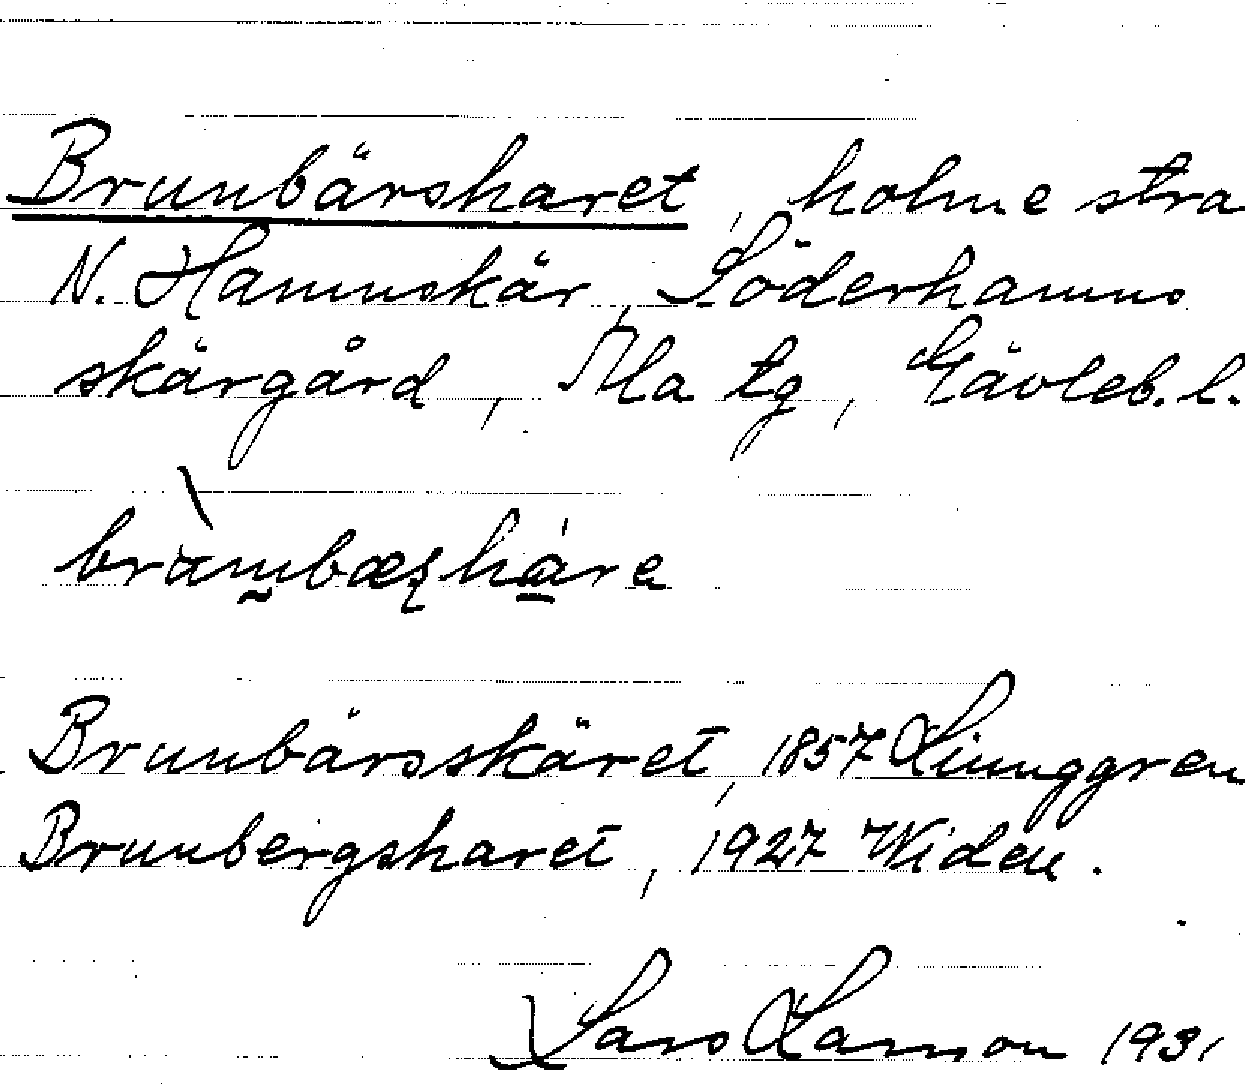 Brunbärsharet, holme stra
N. Hamnskär, Söderhamns
skärgård, Ala tg, Gävleb. l.
Brunbärsskäret, 1857 Liunggren
Brunbergsharet, 1927 Widen.
Lars Larsson 1931